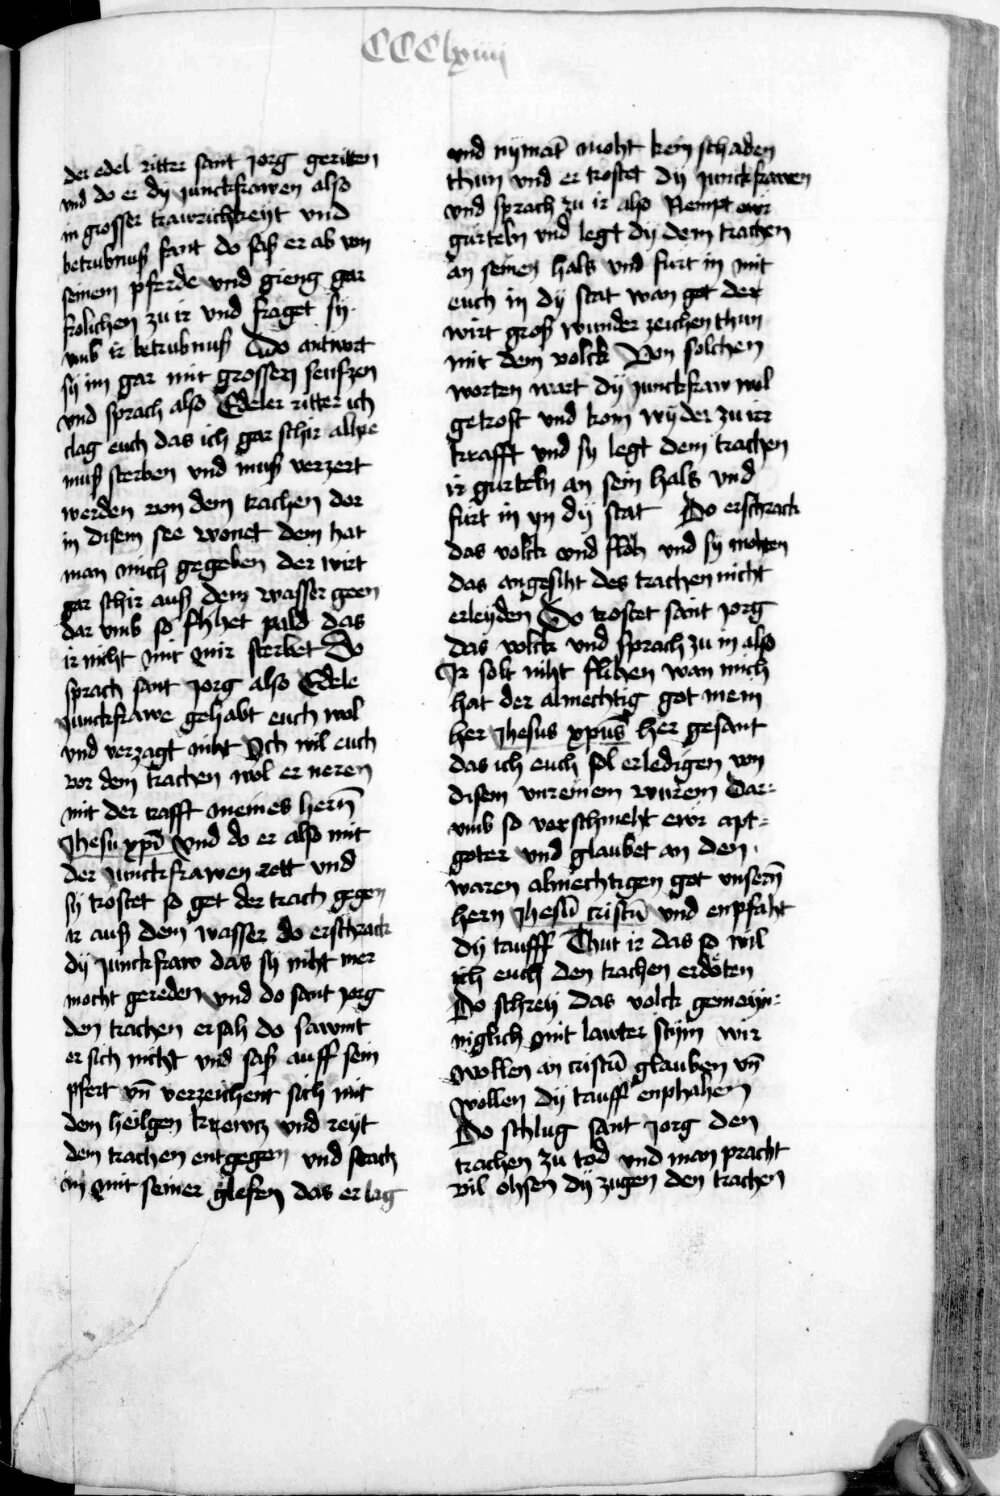 CCClxiiij
der edel ritter sant Jorg geritten
vnd do er dÿ junckfrawen also
in grosser trawrichkeÿt vnd
betrubnuß fant do saß er ab von
seinem pferde vnd gieng gar
frolichen zu ir vnd fraget sÿ
vmb ir betrubnuß Also antwort
sÿ im gar mit grossem seufzen
vnd sprach also Edeler ritter ich
clag euch das ich gar schir alhie
muß sterben vnd muß verzert
werden von dem trachen der
in disem see wonet dem hat
man mich gegeben der wirt
gar schir auß dem wasser geen
dar vmb so flihet pald das
ir nicht mit mir sterbet Do
sprach sant Jorg also Edele
Junckfrawe gehabt euch wol
vnd verzagt niht Ich wil euch
vor dem trachen wol er neren
mit der crafft meines hern̄
Jhesu xp̄i Vnd do er also mit
der junckfrawen rett vnd
sÿ trostet so get der trach gegen
ir auß dem wasser do erschrack
dÿ junckfraw das sÿ niht mer
mocht gereden vnd do sant Jorg
den trachen ersah do sawmt
er sich nicht vnd saß auff sein
pfert vn̄ verzeichent sich mit
dem heilgen krewtz vnd reÿt
dem trachen entgegen vnd stach
in mit seiner glefen das er lag
vnd nÿmāt moht kein schaden
thun vnd er trostet dÿ junckfrawen
vnd sprach zu ir also Nempt ewr
gurteln vnd legt dÿ dem trachen
an seinen hals vnd furt in mit
euch in dÿ stat wan got der
wirt groß wunder zeichen thun
mit dem volck Von solchen
worten wart dÿ junckfraw wol
getrost vnd kom wÿder zu irr
krafft vnd sÿ legt dem trachen
ir gurteln an sein hals vnd
furt in ÿn dÿ stat Do erschrack
das volck vnd floh vnd sÿ mohten
das angesiht des trachen nicht
erleÿden Do trostet sant Jorg
das volck vnd sprach zu in also
Ir solt niht flihen wan mich
hat der almechtig got mein
her Jhesus xp̄us her gesant
das ich euch sol erledigen von
disem vnreinem wurem Dar-
vmb so verschmeht ewr apt-
goter vnd glaubet an den
waren almechtigen got vnsern̄
hern Jhesū cristū vnd enpfaht
dÿ taufff Thut ir das so wil
ich euch den trachen erdöten
Do schreÿ das volck gemeÿn-
niglich mit lawter stÿm wir
wollen an cristū glauben vn̄
wollen dÿ tauff enphahen
Do schlug sant Jorg den
trachen zu tod vnd man pracht
vil ohsen dÿ zugen den trachen